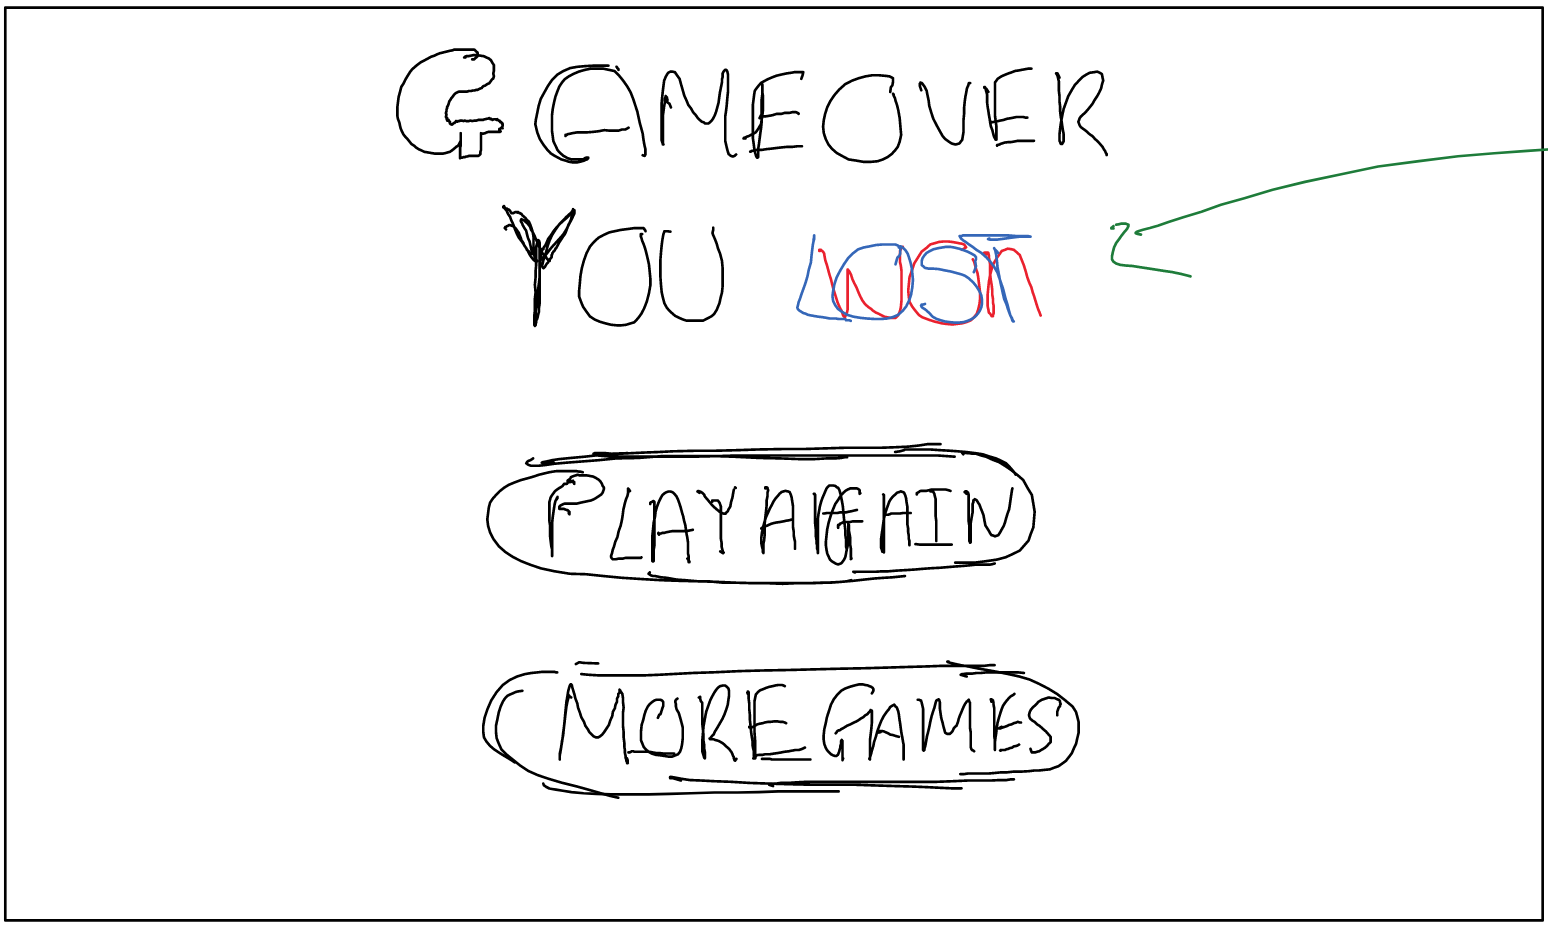 GAME OVER
YOU LOST WON
PLAY AGAIN
MORE GAMES